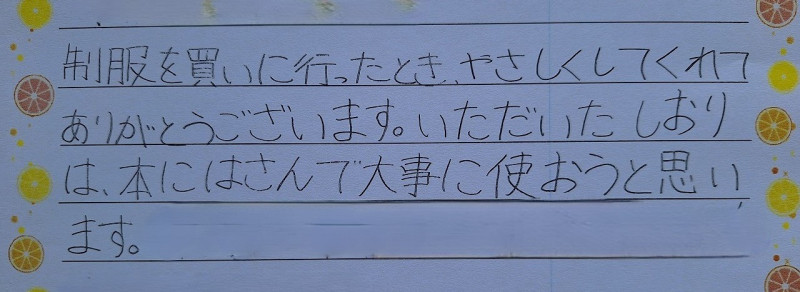 制服を買いに行ったとき、やさしくしてくれて
ありがとうございます。いただいたしおり
は、本にはさんで大事に使おうと思い
ます。